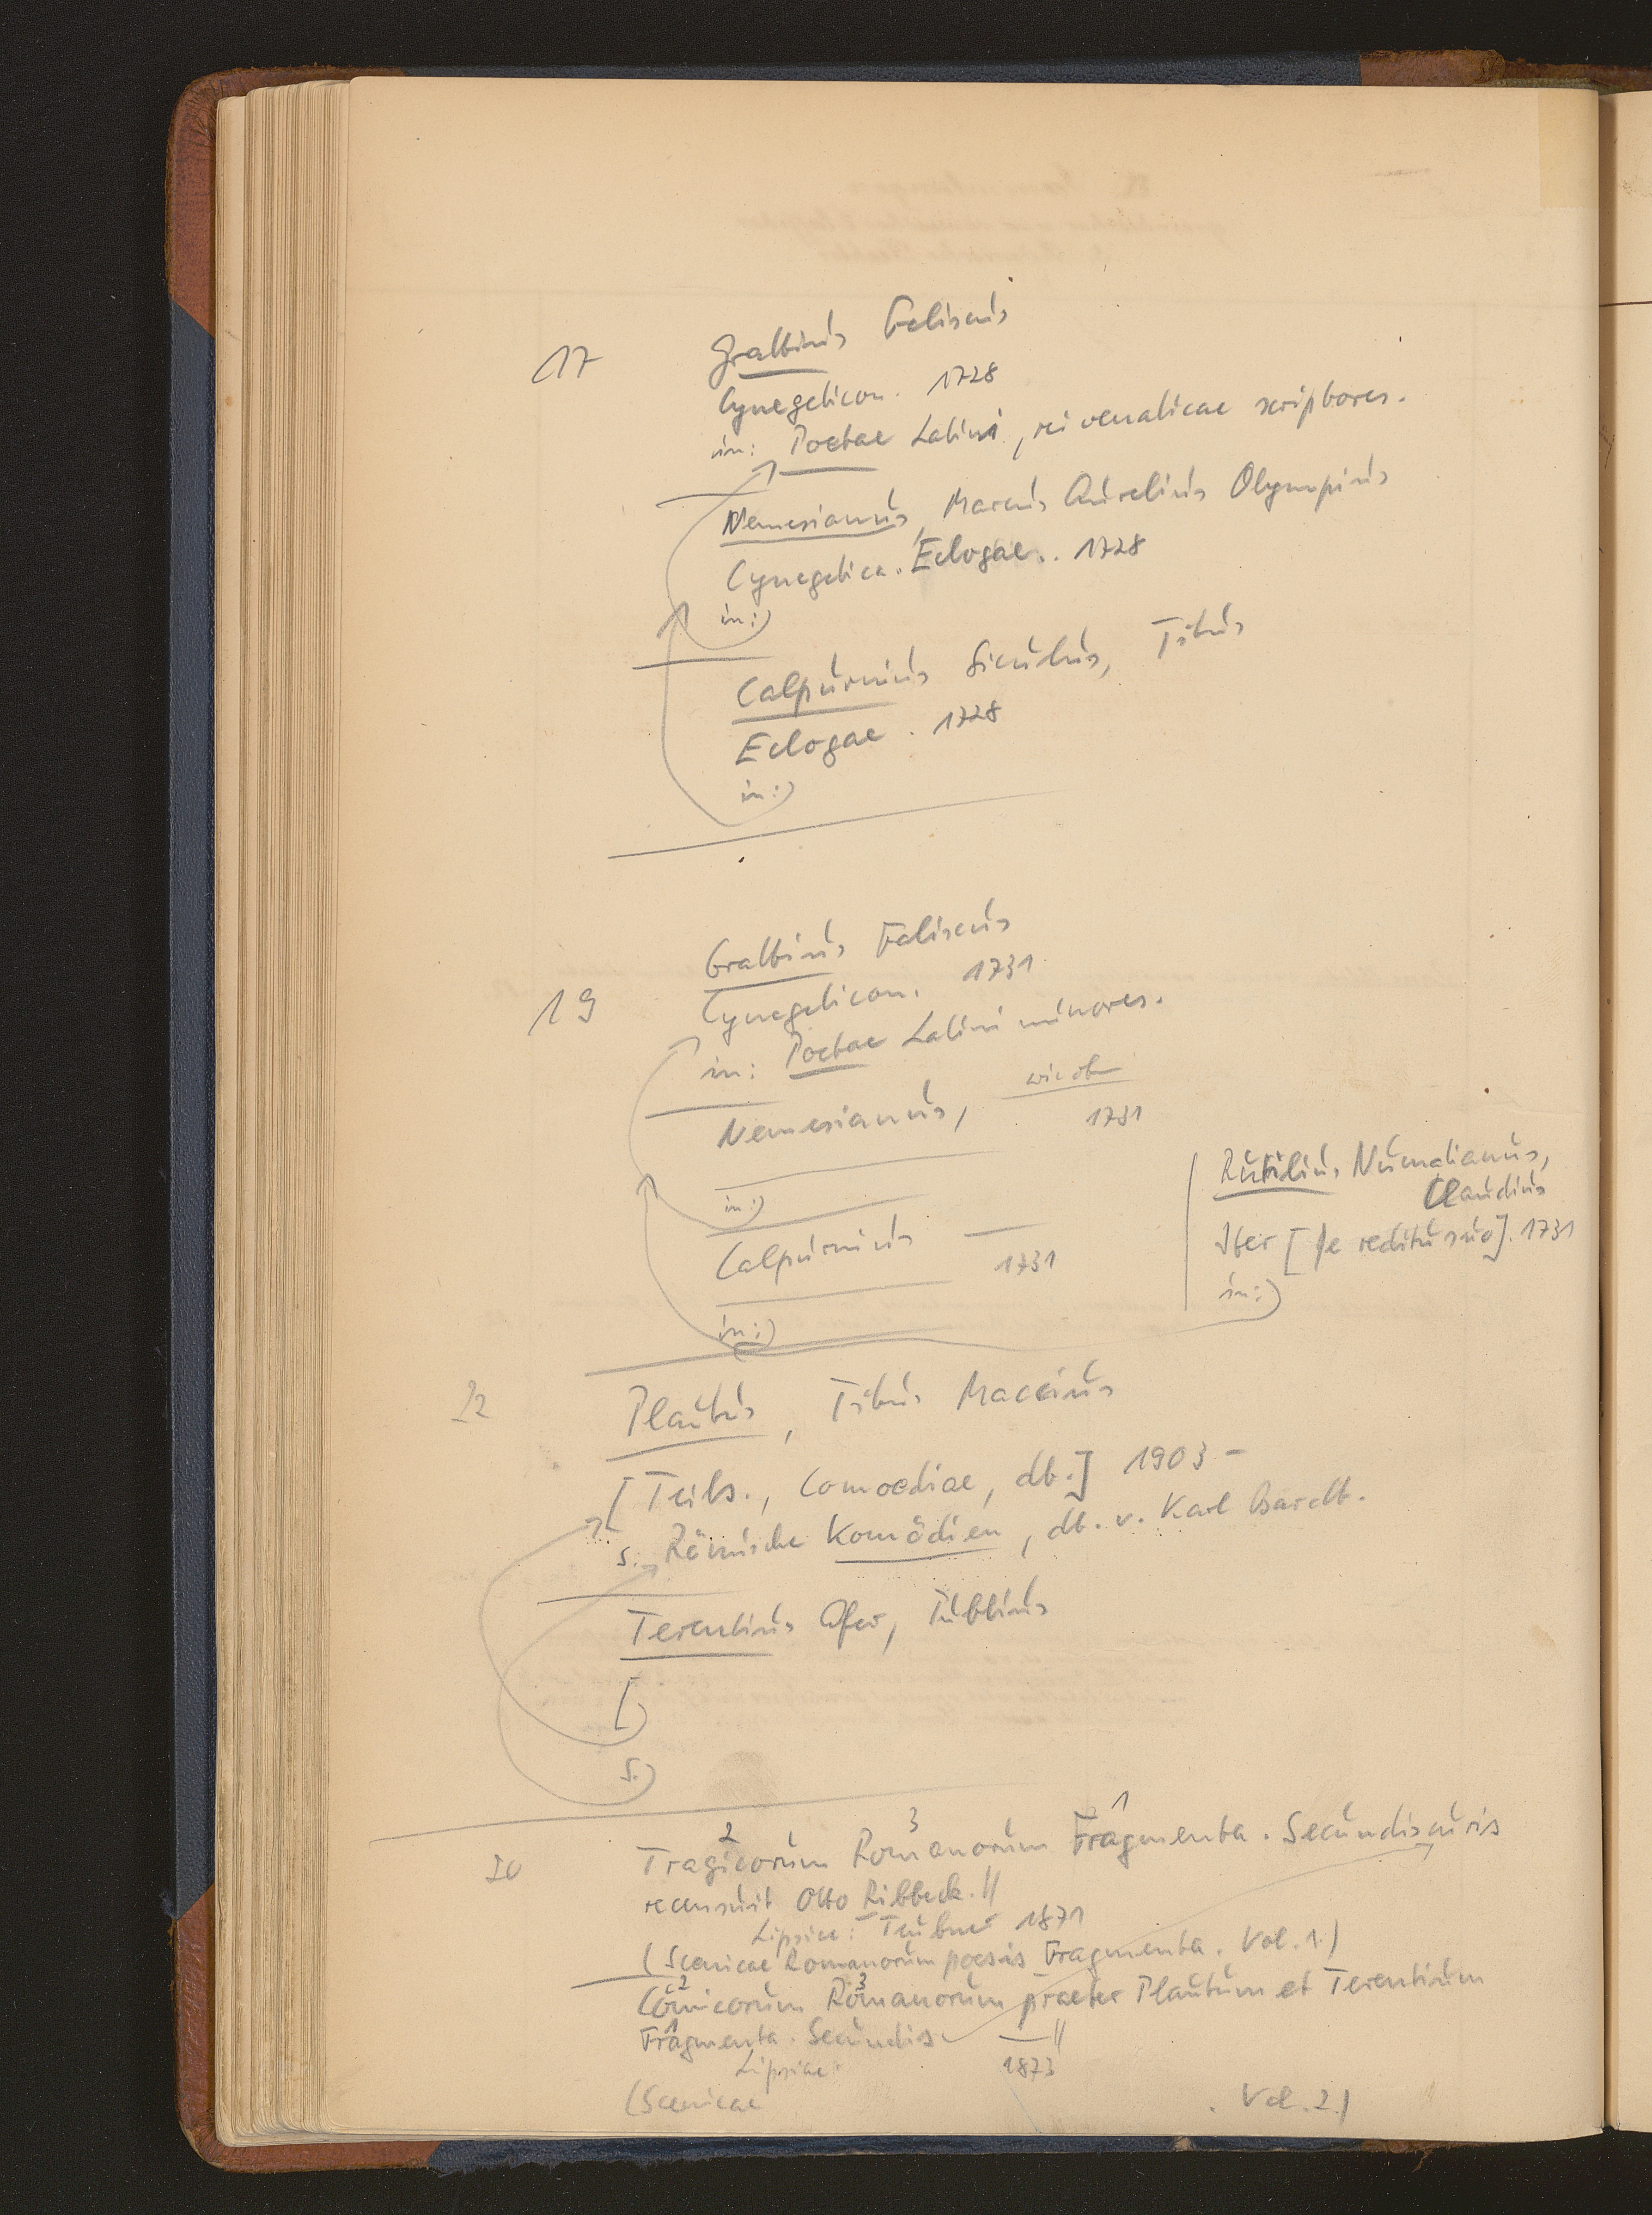 17 Grattius Faliscus
Cynegeticon. 1728
in: Poetae Latini, rei venaticae scriptores.
Nemesianus, Marcus Aurelius Olympius
Cynegetica. Eclogae. 1728
in:)
Calpurnius Siculus, Titus
Eclogae. 1728
in:)
Grattius Faliscus
19 Cynegeticon. 1731
in: Poetae Latini minores.
Nemesianus, wie oben
1731
in:)
Calpurnius —
1731
in:)
Rutilius Numatianus,
Claudius
Iter [de reditu suo]. 1731
in:)
22 Plautus, Titus Maccius
[Teils., Comoediae, dt.] 1903 -
s. Römische Komödien, dt. v. Karl Bardt.
Terentius Afer, Publius
[)
s.)
20 Tragicorum² Romanorum³ Fragmenta¹. Secundis curis
recensuit Otto Ribbeck. //
Lipsiae: Teubner 1871
(Scenicae Romanorum poesis Fragmenta. Vol. 1.)
Comicorum² Romanorum³ praeter Plautum et Terentium
Fragmenta¹. Secundis — //
Lipsiae 1873
(Scenicae . Vol. 2.)